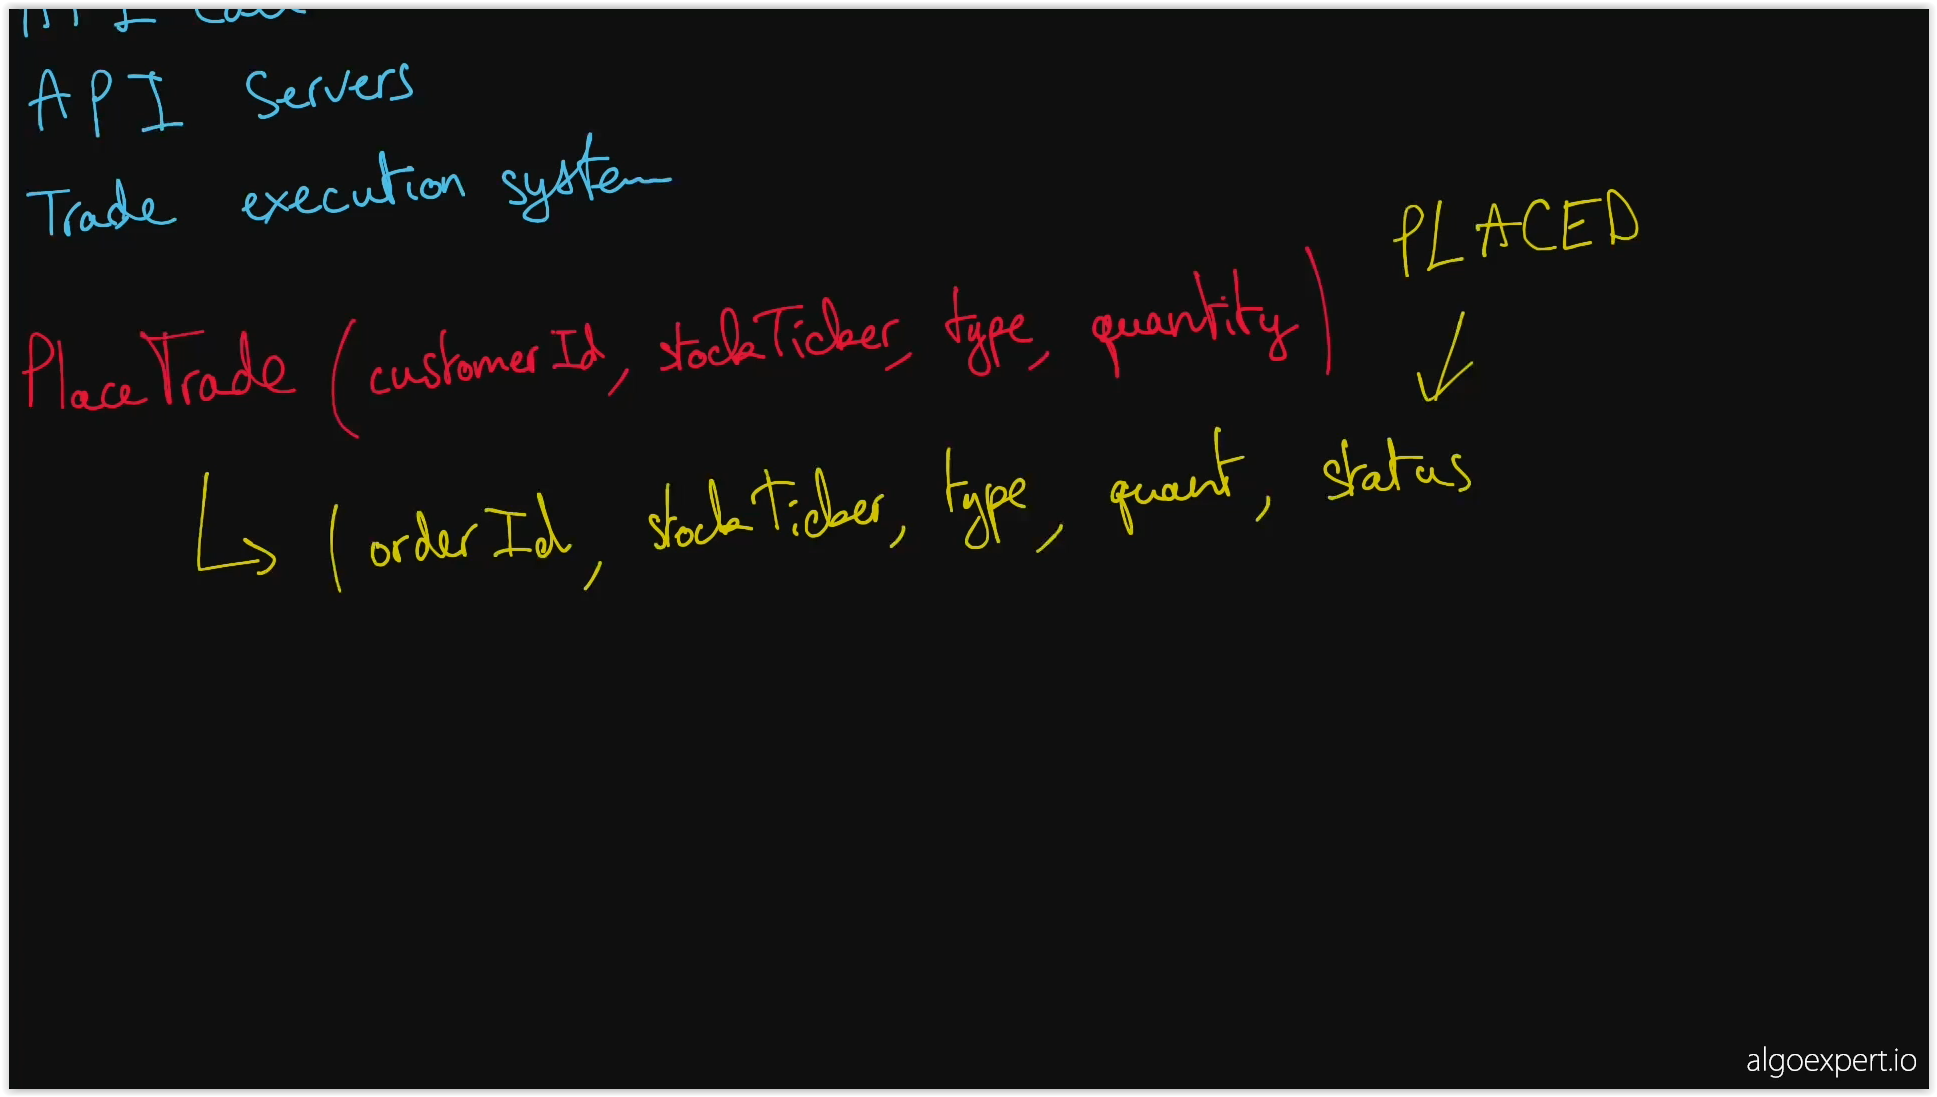 API Call
API Servers
Trade execution system
PLACED
PlaceTrade (customerId, stockTicker, type, quantity)
(orderId, stockTicker, type, quant, status
algoexpert.io